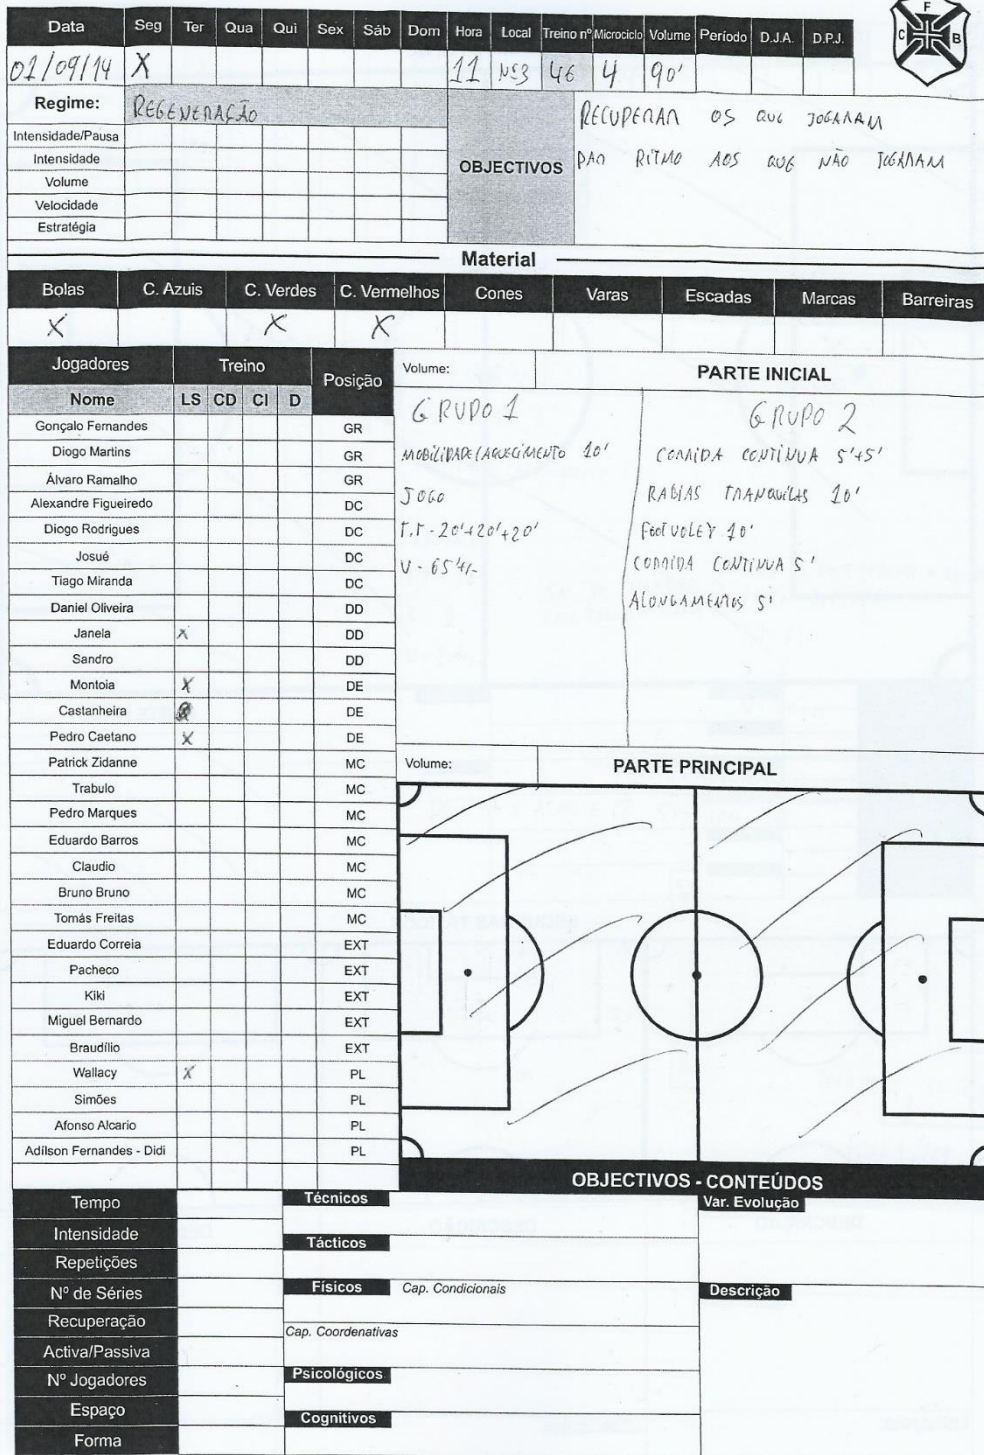 F
C B
Data Seg Ter Qua Qui Sex Sáb Dom Hora Local Treino nº Microciclo Volume Período D.J.A. D.P.J.
01/09/14 X 11 Nº3 46 4 90'
Regime: REGENERAÇÃO
Intensidade/Pausa
Intensidade
Volume
Velocidade
Estratégia
OBJECTIVOS
RECUPERAR OS QUE JOGARAM
DAR RITMO AOS QUE NÃO JOGARAM
Material
Bolas C. Azuis C. Verdes C. Vermelhos Cones Varas Escadas Marcas Barreiras
X X X
Jogadores Treino Posição
Nome LS CD CI D
Gonçalo Fernandes GR
Diogo Martins GR
Álvaro Ramalho GR
Alexandre Figueiredo DC
Diogo Rodrigues DC
Josué DC
Tiago Miranda DC
Daniel Oliveira DD
Janela X DD
Sandro DD
Montoia X DE
Castanheira DE
Pedro Caetano X DE
Patrick Zidanne MC
Trabulo MC
Pedro Marques MC
Eduardo Barros MC
Claudio MC
Bruno Bruno MC
Tomás Freitas MC
Eduardo Correia EXT
Pacheco EXT
Kiki EXT
Miguel Bernardo EXT
Braudílio EXT
Wallacy X PL
Simões PL
Afonso Alcario PL
Adílson Fernandes - Didi PL
Volume: PARTE INICIAL
GRUPO 1
MOBILIDADE/AQUECIMENTO 10'
JOGO
T.T - 20'+20'+20'
V - 65'+/-
GRUPO 2
CORRIDA CONTÍNUA 5'+5'
RABIAS TRANQUILAS 10'
FOOTVOLEY 10'
CORRIDA CONTINUA 5'
ALONGAMENTOS 5'
Volume: PARTE PRINCIPAL
OBJECTIVOS - CONTEÚDOS
Tempo
Intensidade
Repetições
Nº de Séries
Recuperação
Activa/Passiva
Nº Jogadores
Espaço
Forma
Técnicos
Tácticos
Físicos Cap. Condicionais
Cap. Coordenativas
Psicológicos
Cognitivos
Var. Evolução
Descrição